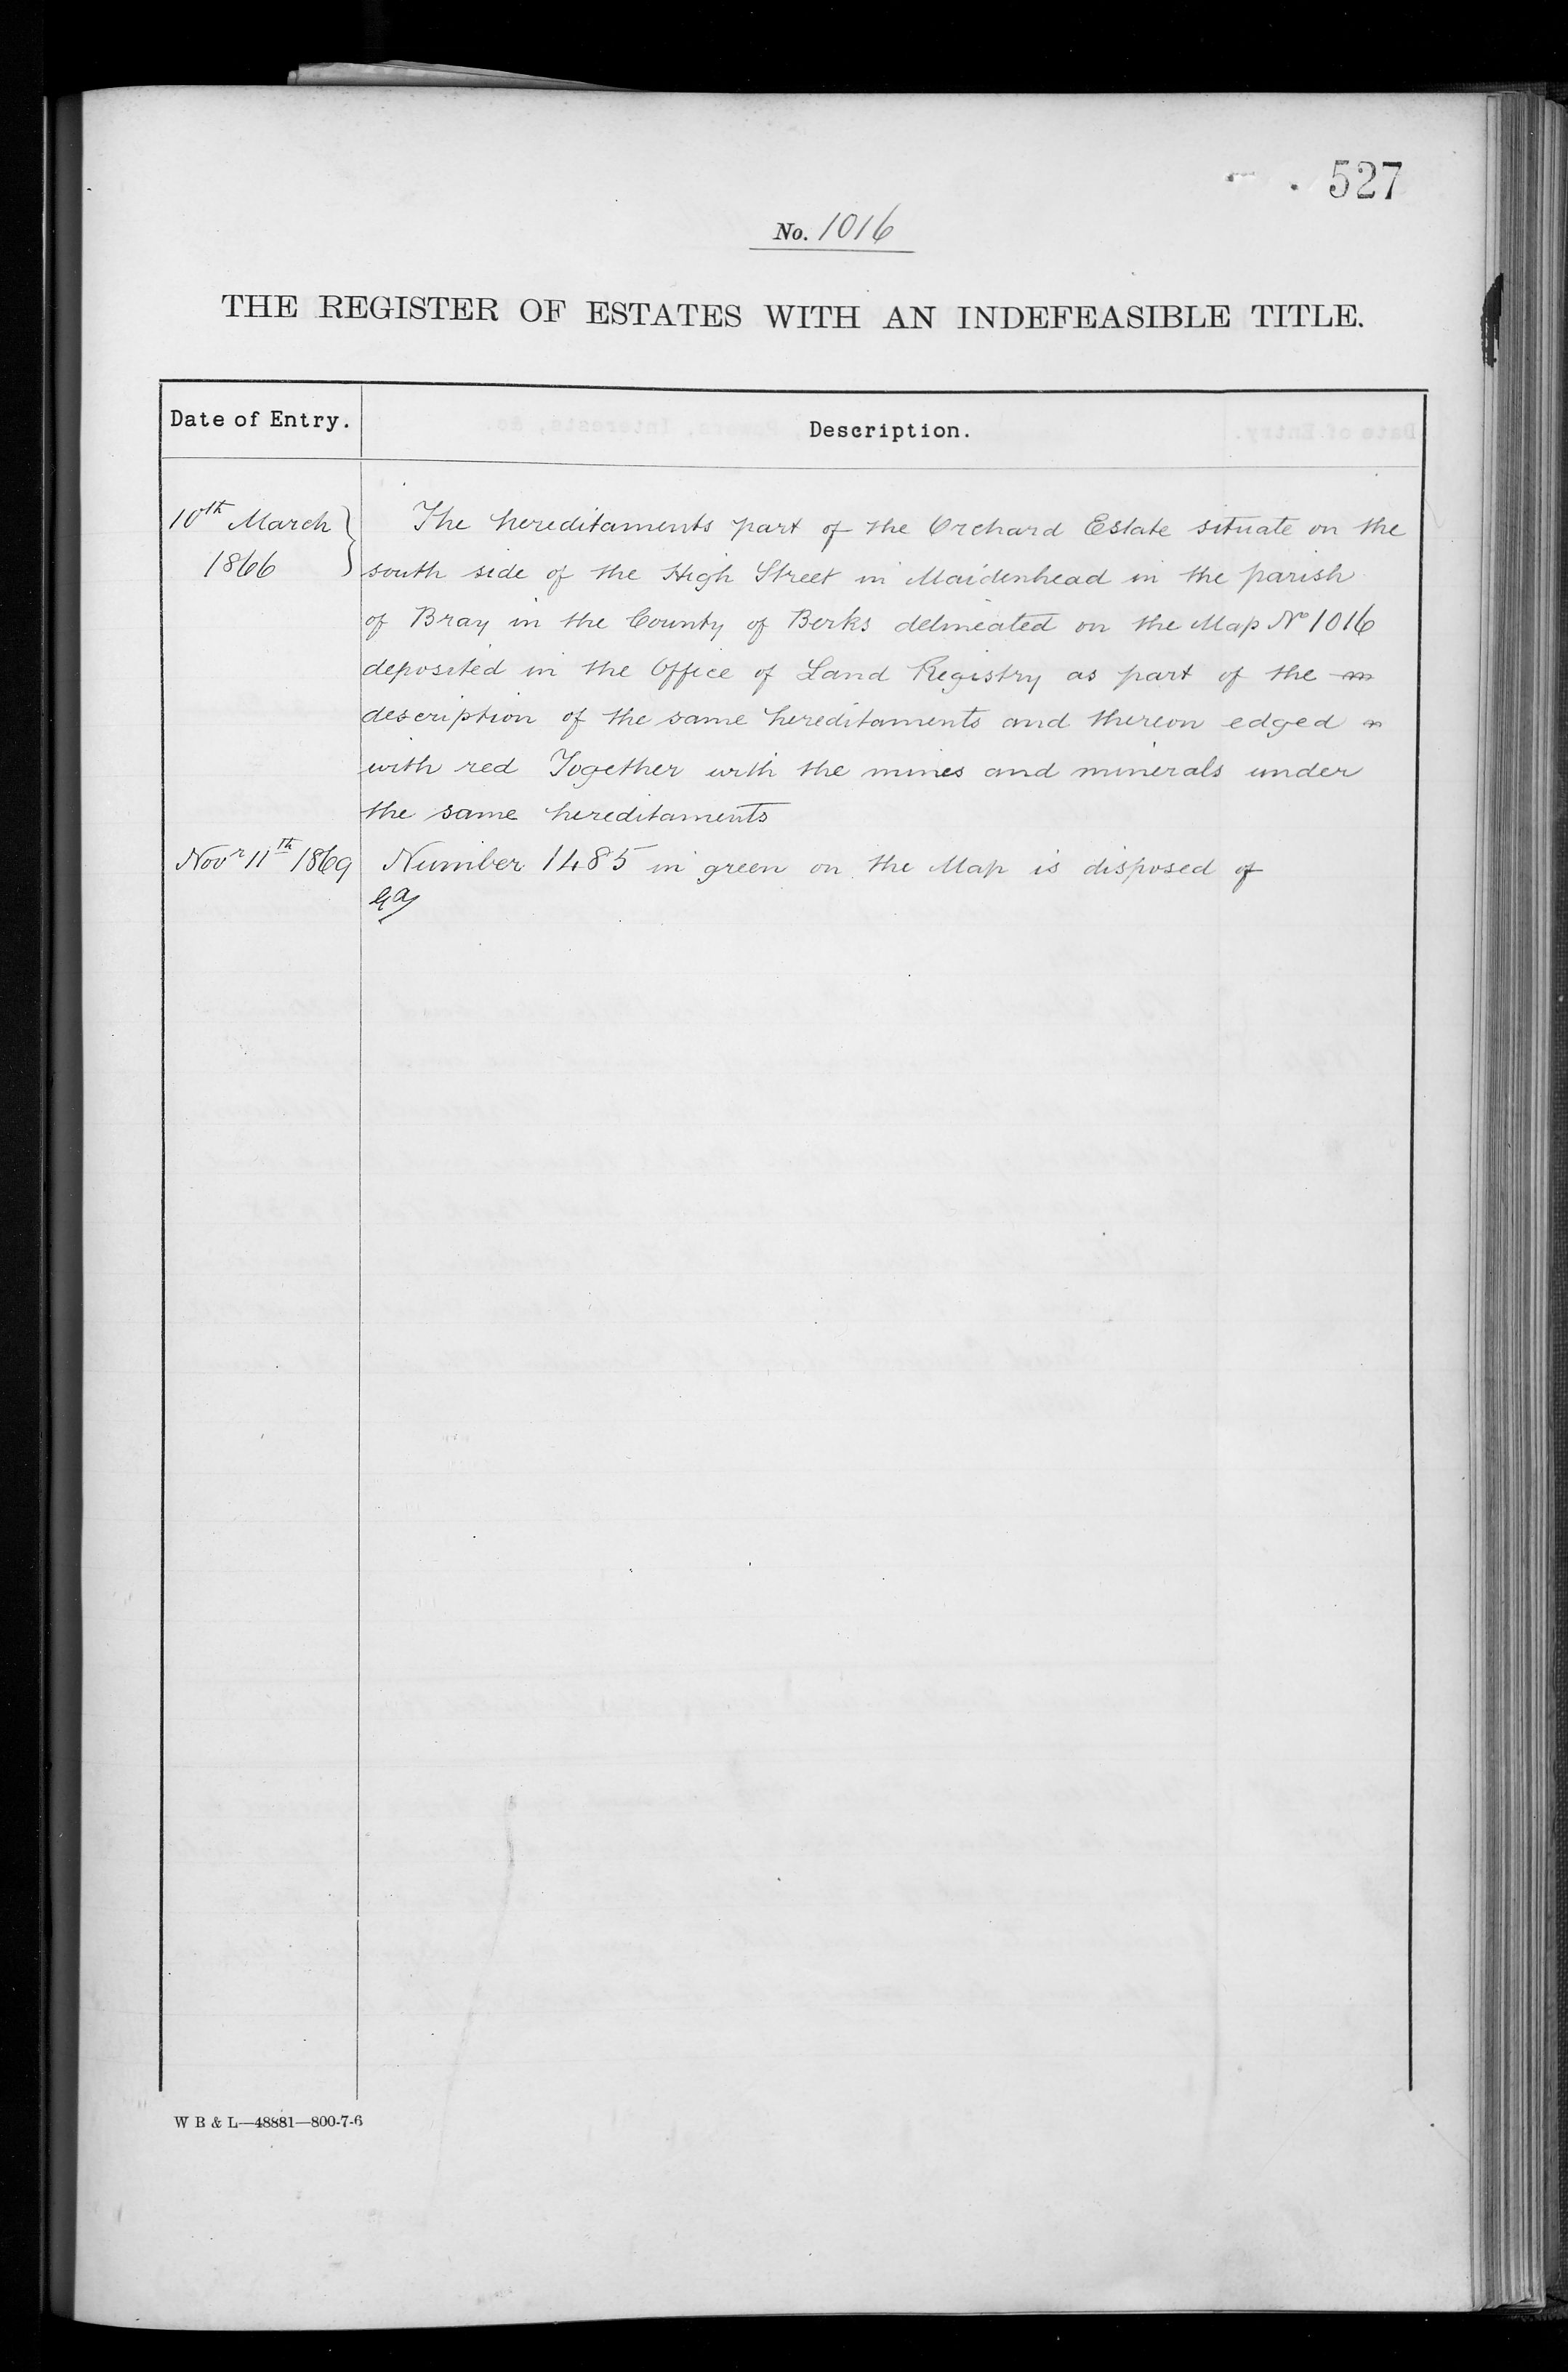 527
No. 1016
THE REGISTER OF ESTATES WITH AN INDEFEASIBLE TITLE.
Date of Entry. Description.
10th March 1866
The hereditaments part of the Orchard Estate situate on the
south side of the High Street in Maidenhead in the parish
of Bray in the County of Berks delineated on the Map No 1016
deposited in the Office of Land Registry as part of the
description of the same hereditaments and thereon edged
with red Together with the mines and minerals under
the same hereditaments
Novr 11th 1869 Number 1485 in green on the Map is disposed of
W B & L—48881—800-7-6